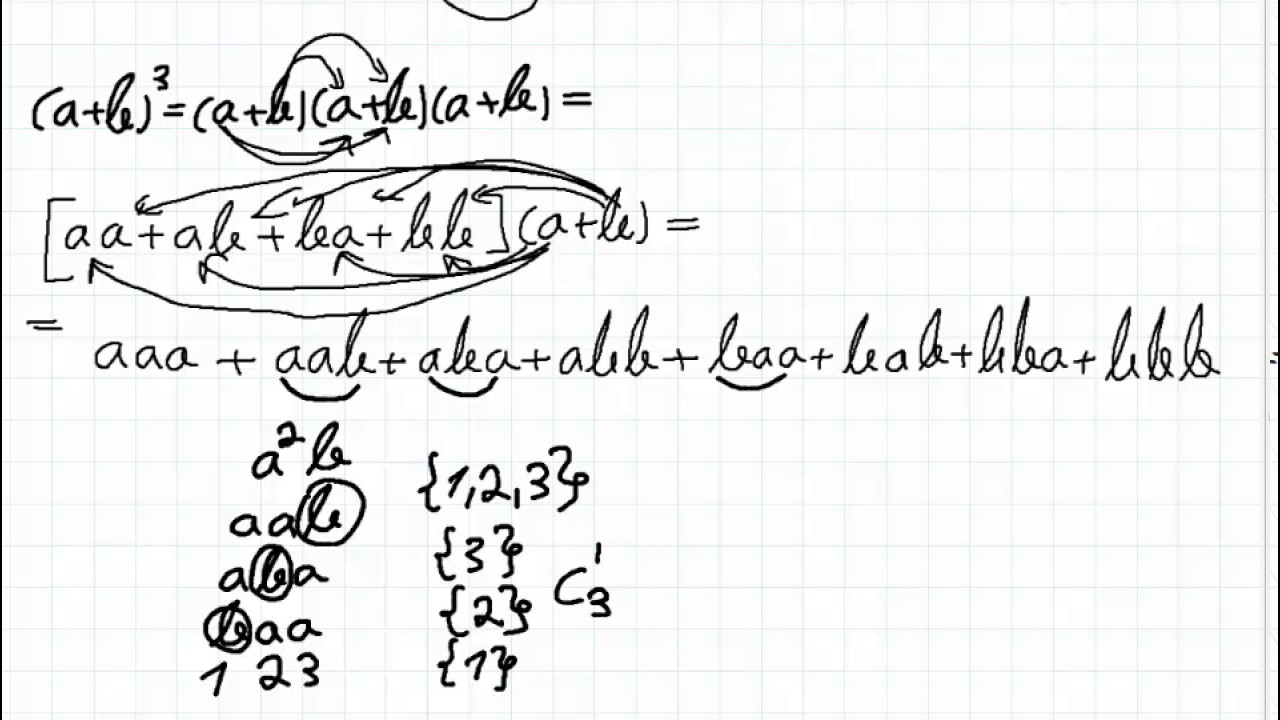 (a+b)³=(a+b)(a+b)(a+b)=
[aa+ab+ba+bb](a+b)=
= aaa + aab+aba+abb+baa+bab+bba+bbb
a²b {1,2,3}
aab {3}
aba {2} C₃¹
baa {1}
1 2 3